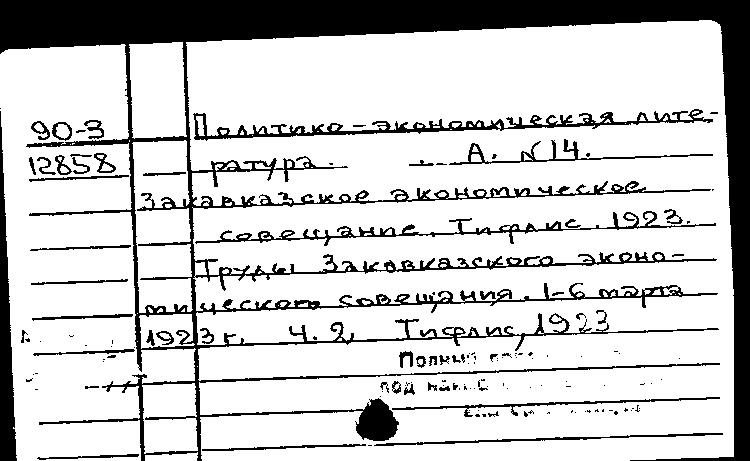 90-3 Политико-экономическая лите-
12858 ратура. А. №14.
Закавказское экономическое
совещание. Тифлис. 1923.
Труды Закавказского эконо-
мического совещания. 1-6 марта
1923 г. Ч. 2, Тифлис, 1923
Полный
под